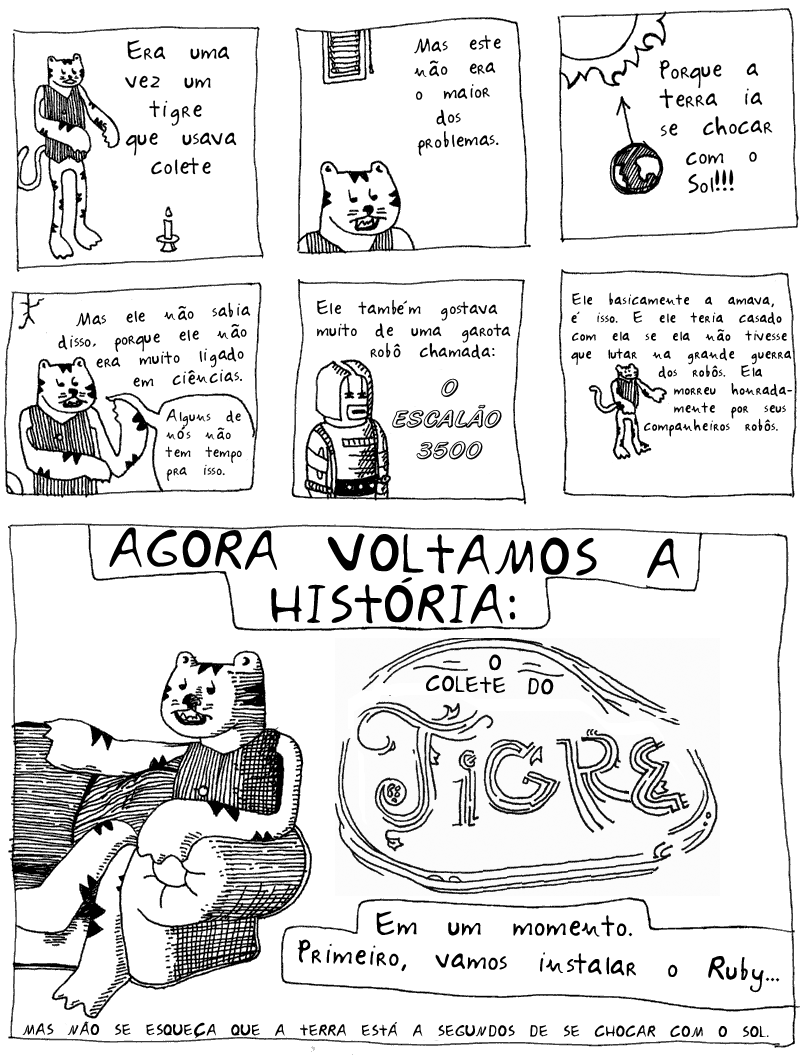 Era uma
vez um
tigre
que usava
colete
Mas este
não era
o maior
dos
problemas.
Porque a
terra ia
se chocar
com o
Sol!!!
Mas ele não sabia
disso, porque ele não
era muito ligado
em ciências.
Alguns de
nós não
tem tempo
pra isso.
Ele também gostava
muito de uma garota
robô chamada:
O
ESCALÃO
3500
Ele basicamente a amava,
é isso. E ele teria casado
com ela se ela não tivesse
que lutar na grande guerra
dos robôs. Ela
morreu honrada-
mente por seus
companheiros robôs.
AGORA VOLTAMOS A
HISTÓRIA:
O
COLETE DO
TIGRE
Em um momento.
Primeiro, vamos instalar o Ruby...
MAS NÃO SE ESQUEÇA QUE A TERRA ESTÁ A SEGUNDOS DE SE CHOCAR COM O SOL.